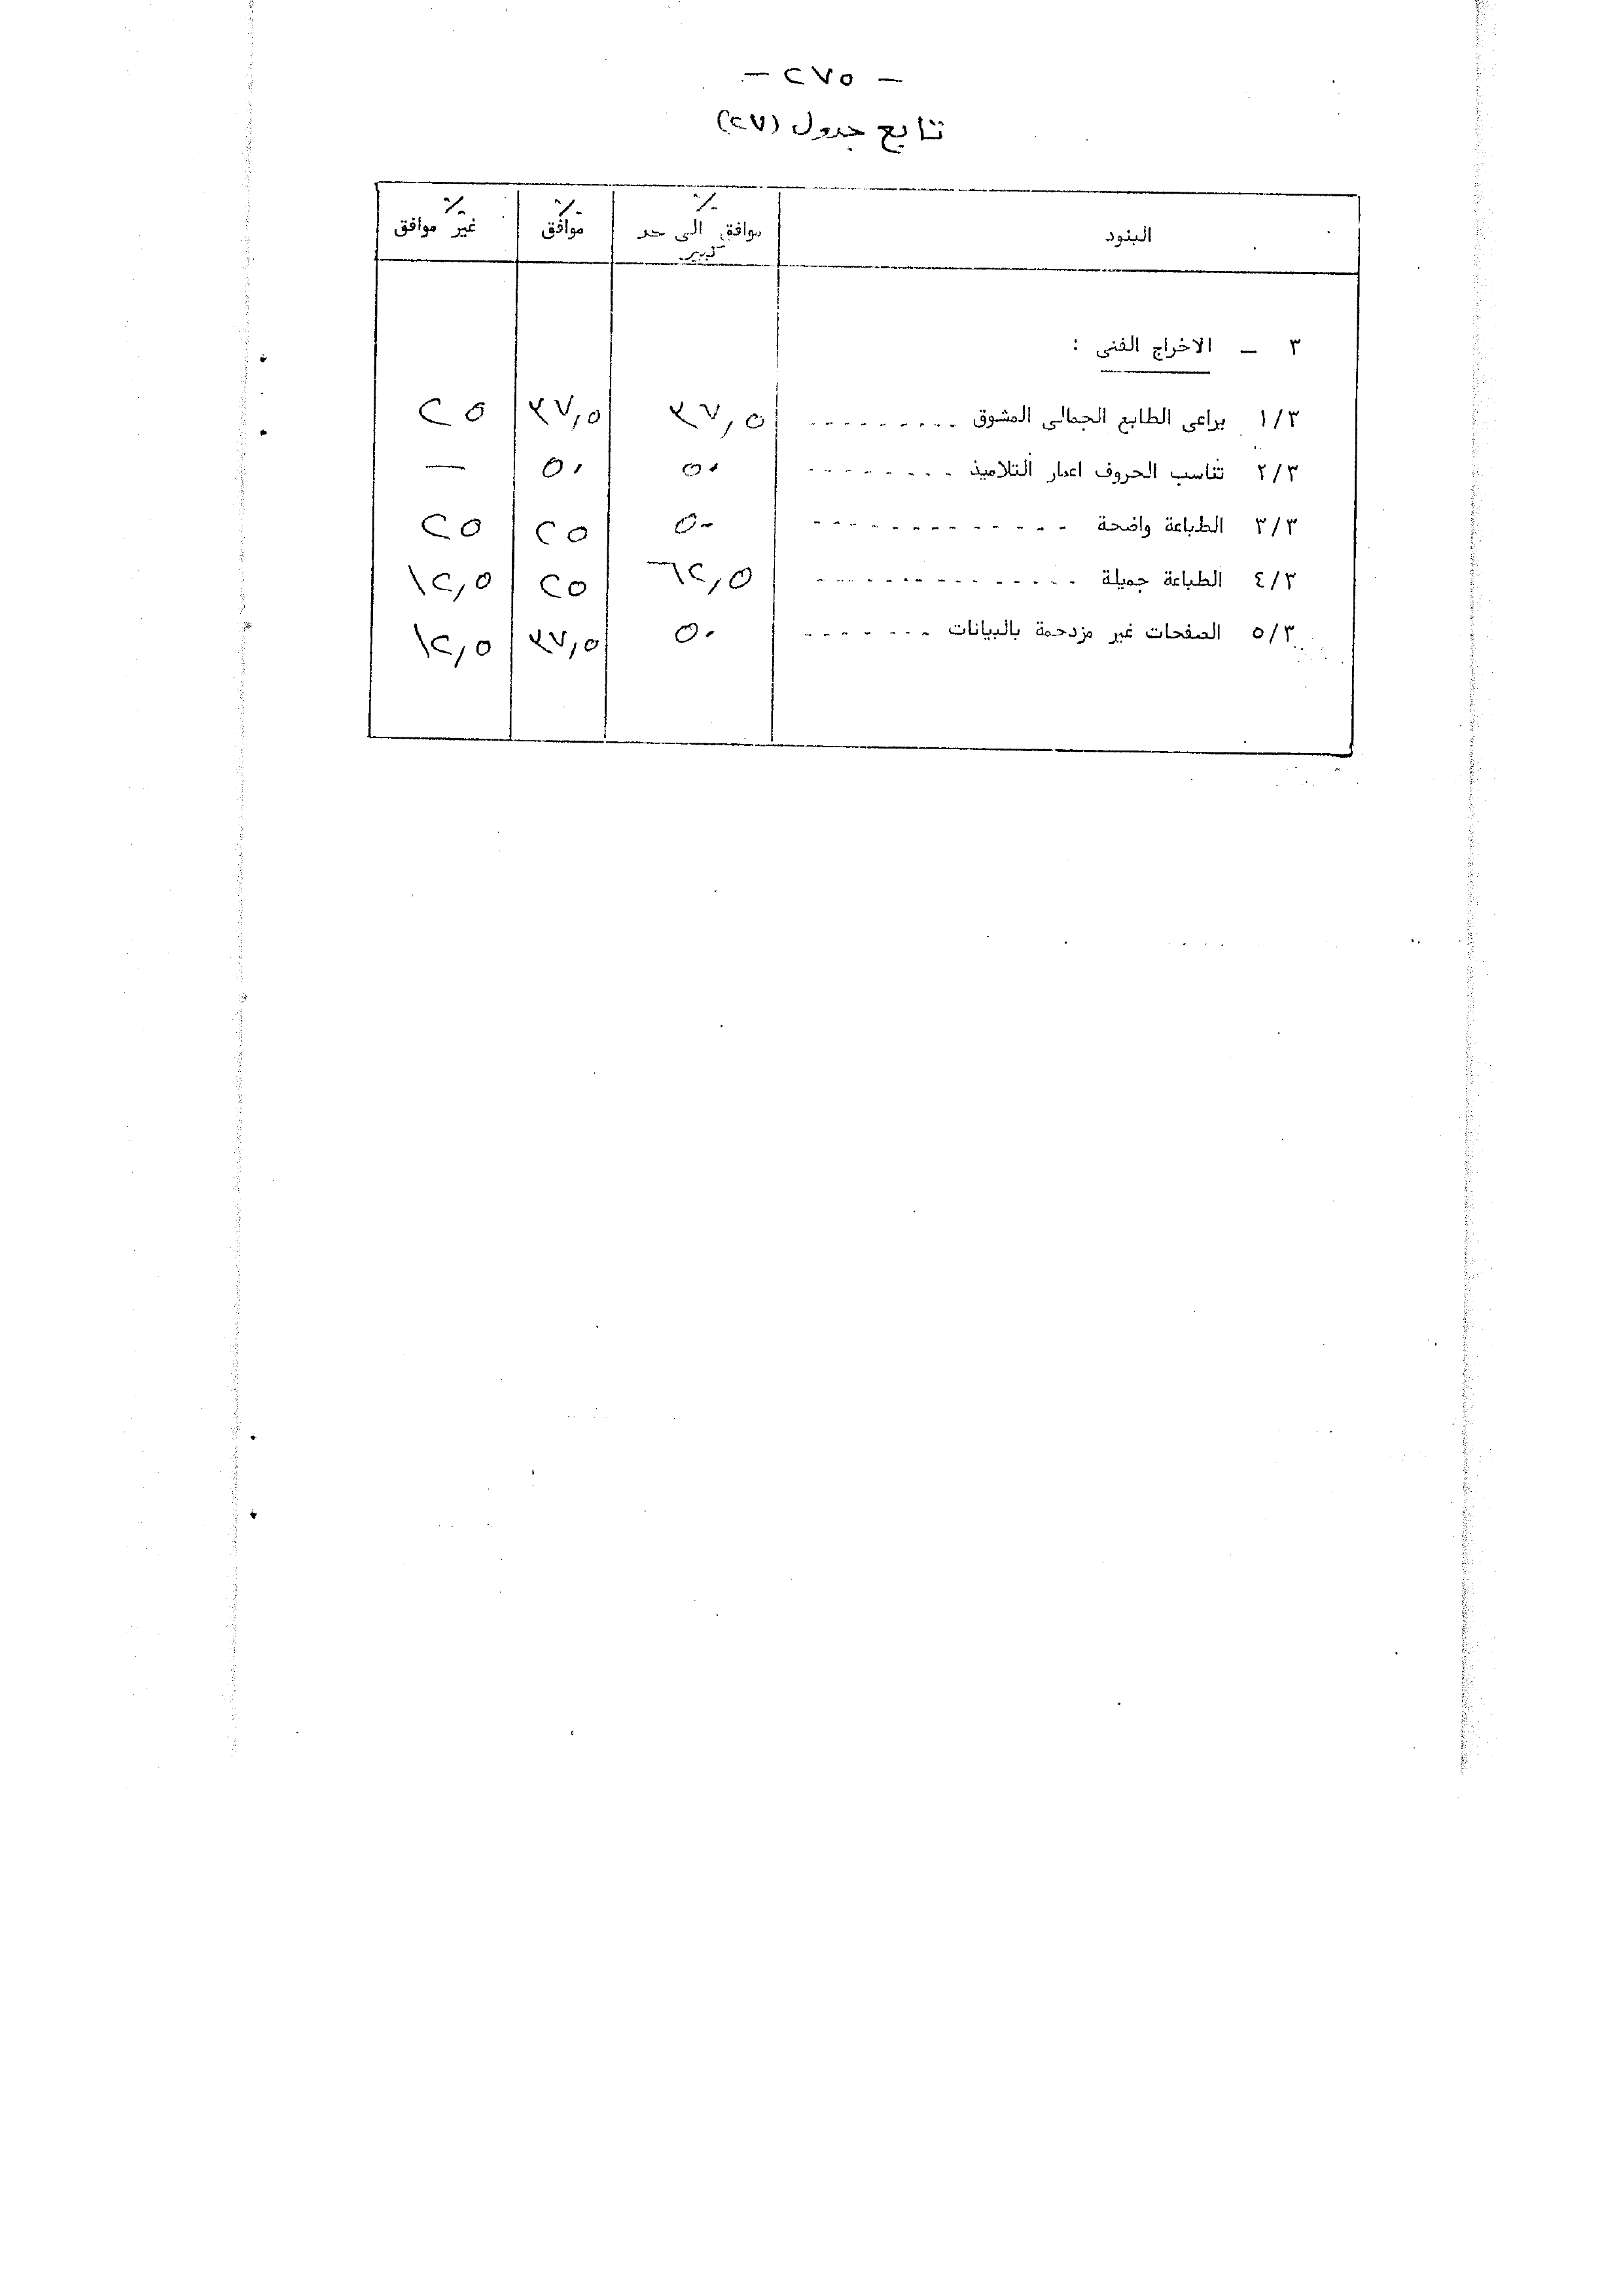 - ٢٧٥ -
تابع جدول (٢٧)
البنود ٪ موافق الى حد كبير ٪ موافق ٪ غير موافق
٣ - الاخراج الفنى :
١/٣ يراعى الطابع الجمالى المشوق ......... ٣٧,٥ ٣٧,٥ ٢٥
٢/٣ تناسب الحروف اعمار التلاميذ ........ ٥٠ ٥٠ —
٣/٣ الطباعة واضحة ............. ٥٠ ٢٥ ٢٥
٤/٣ الطباعة جميلة ............. ٦٢,٥ ٢٥ ١٢,٥
٥/٣ الصفحات غير مزدحمة بالبيانات ....... ٥٠ ٣٧,٥ ١٢,٥